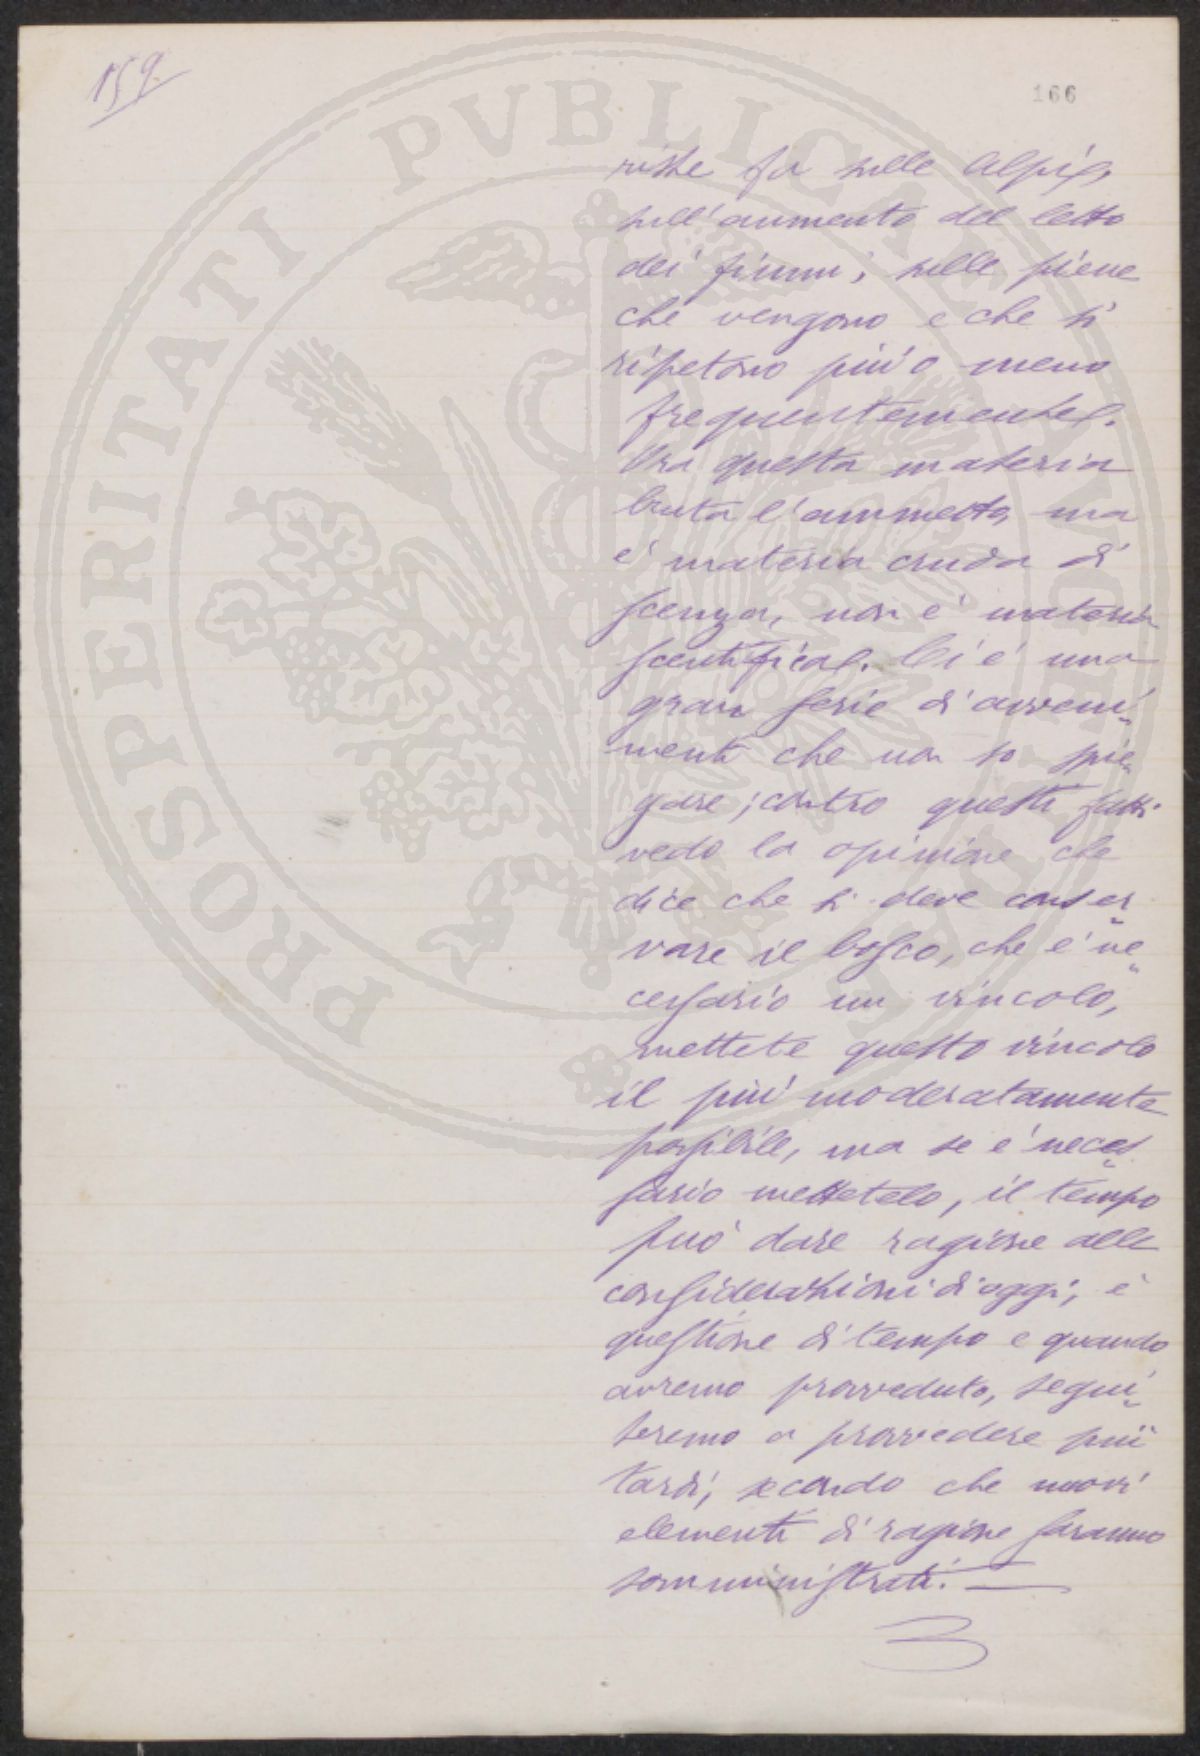 159
166
PROSPERITATI PVBLICAE
riste fa sulle Alpi,
sull'aumento del letto
dei fiumi, sulle piene
che vengono e che si
ripetono più o meno
frequentemente.
Ora questa materia
bruta l'ammetto, ma
è materia cruda di
scenza, non è materia
scentifica. Ci è una
gran serie d'avveni-
menti che non so spie-
gare; contro questi fatti
vedo la opinione che
dice che si deve conser-
vare il bosco, che è ne-
cessario un vincolo,
mettete questo vincolo
il più moderatamente
possibile, ma se è neces-
sario mettetelo, il tempo
può dare ragione alle
considerazioni d'oggi; è
questione di tempo e quando
avremo provveduto, segui-
teremo a provvedere più
tardi, secondo che nuovi
elementi di ragione saranno
somministrati. —